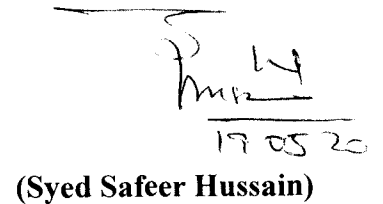 19 05 20
(Syed Safeer Hussain)